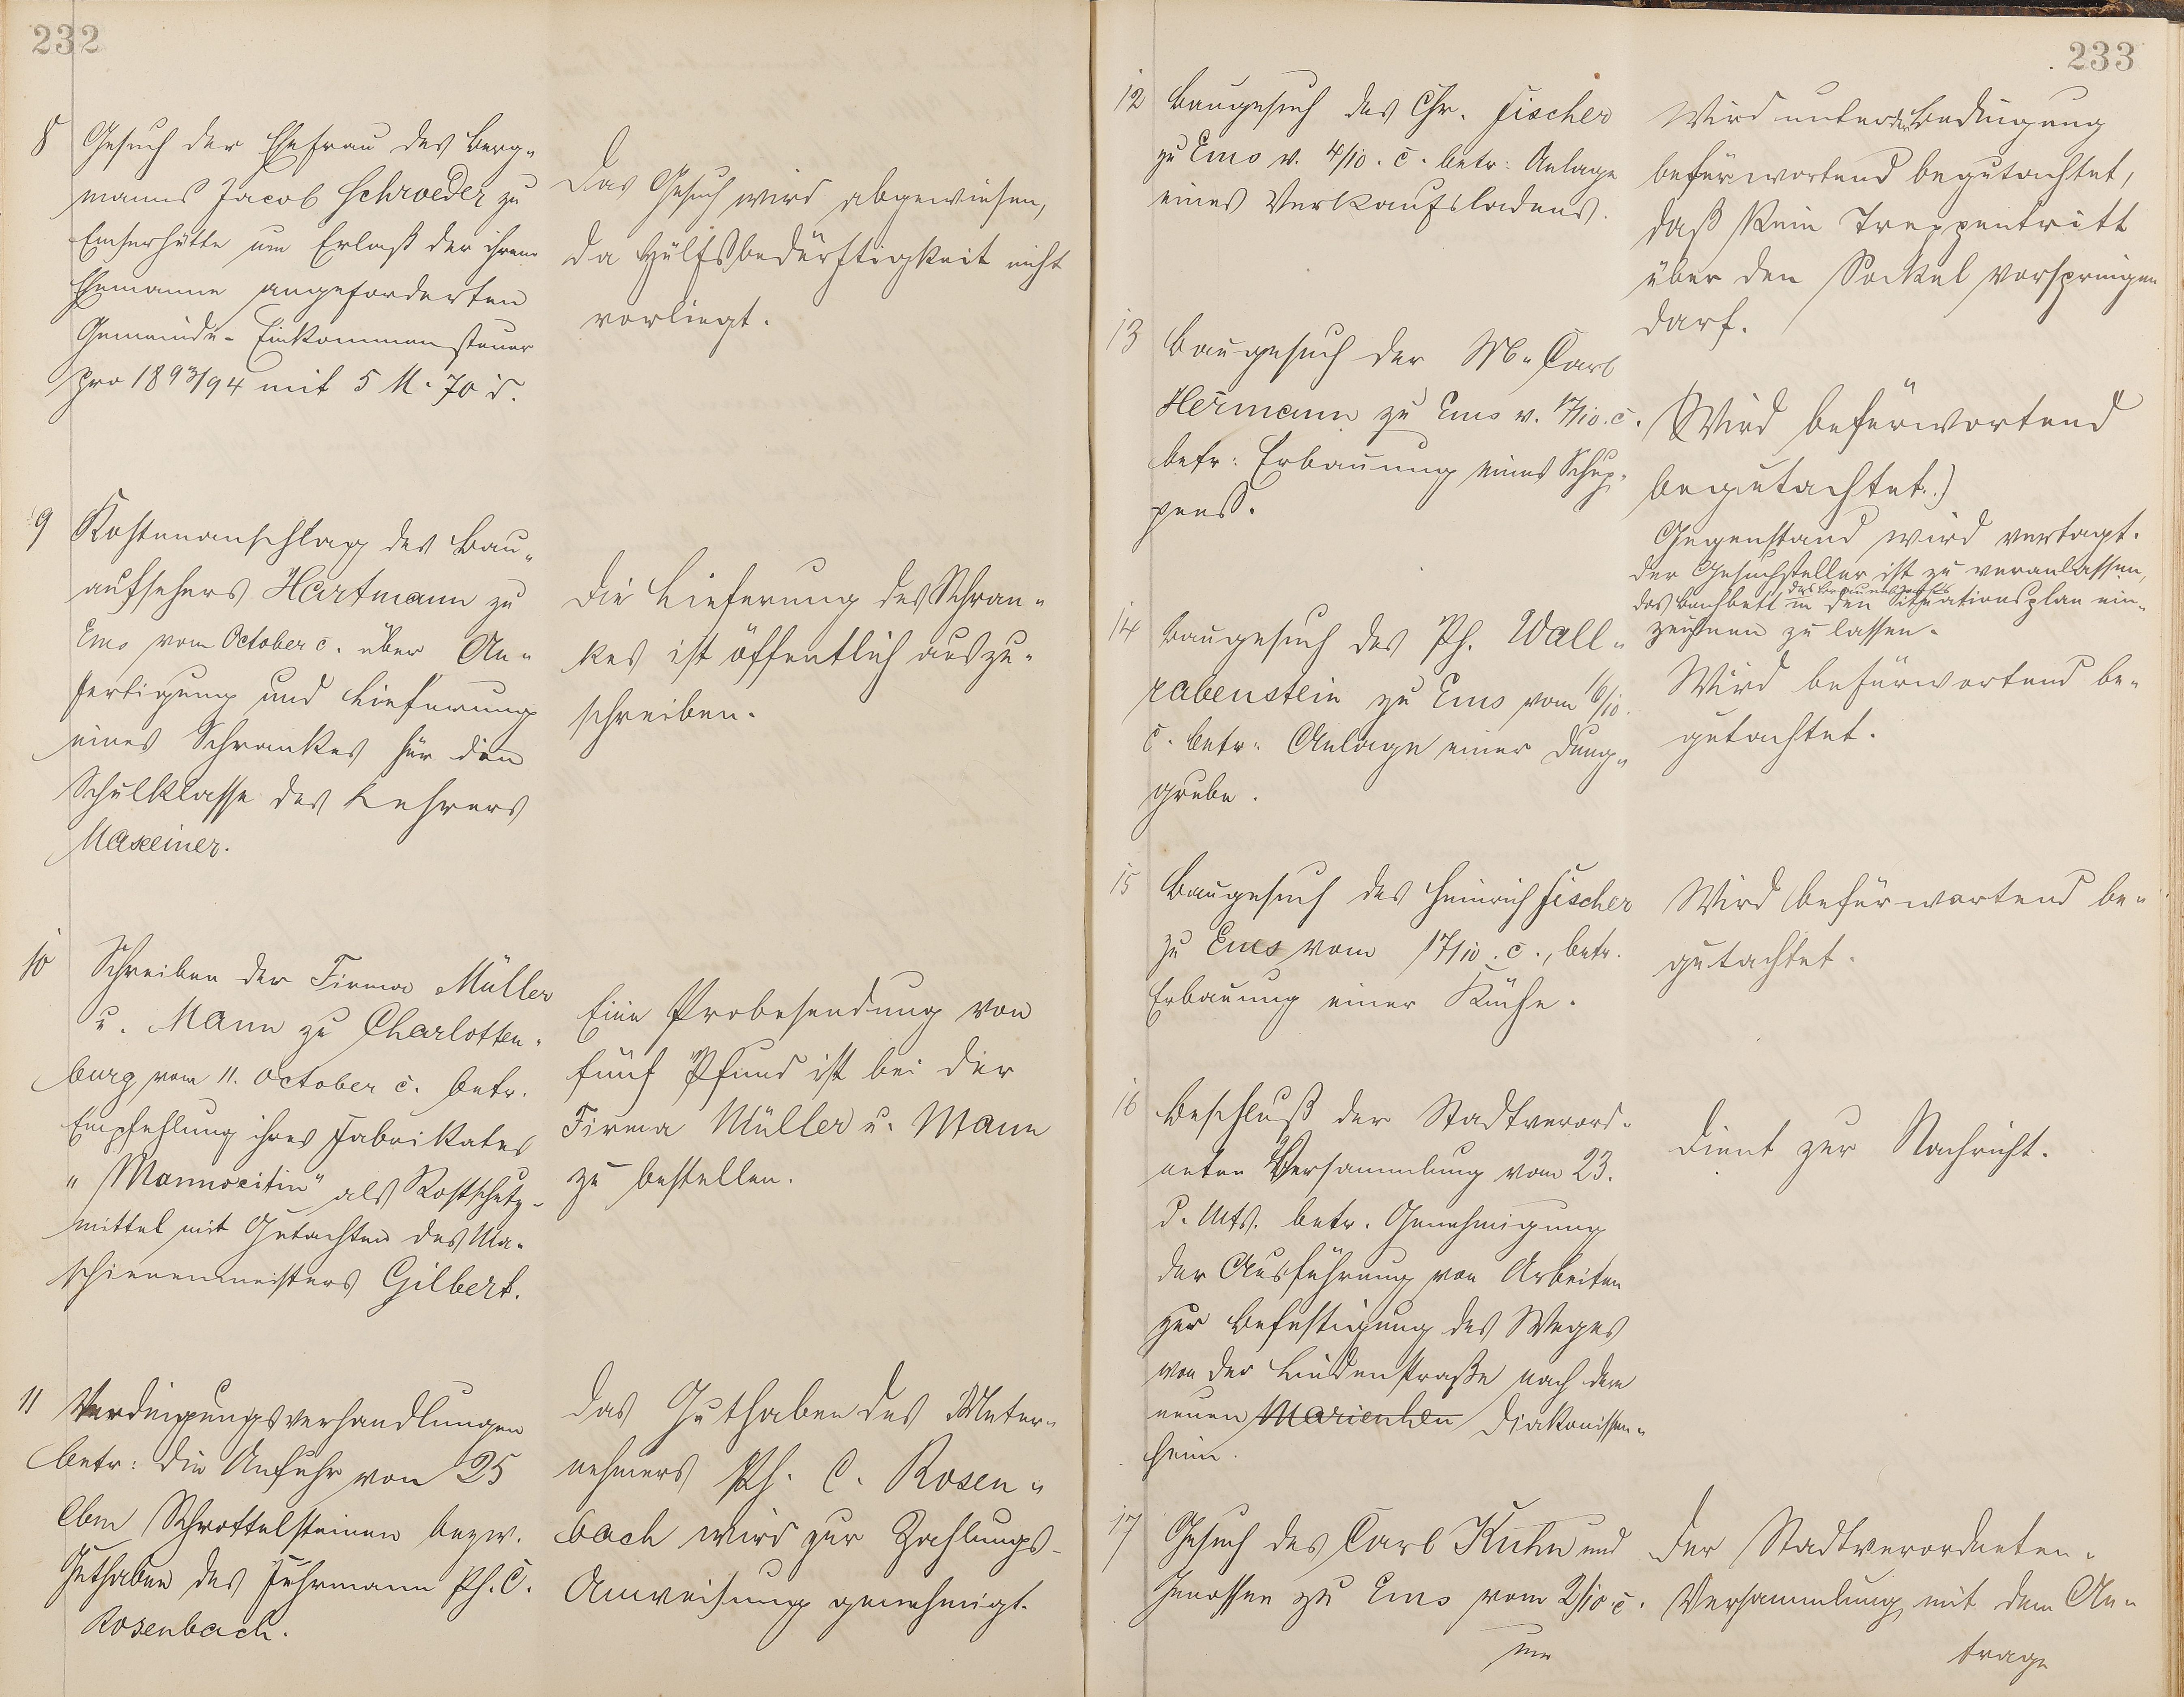 232
8 Gesuch der Ehefrau des Berg-
manns Jacob Schroeder zu
Emserhütte um Erlaß der ihrem
Ehemanne angeforderten
Gemeinde-Einkommensteuer
pro 1893/94 mit 5 M. 70 d.
Das Gesuch wird abgewiesen,
da Hülfsbedürftigkeit nicht
vorliegt.
9 Kostenanschlag des Bau-
aufsehers Hartmann zu
Ems vom October c. über An-
fertigung und Lieferung
eines Schrankes für die
Schulklasse des Lehrers
Maxeiner.
Die Lieferung des Schran-
kes ist öffentlich auszu-
schreiben.
10 Schreiben der Firma Müller
u. Mann zu Charlotten-
burg vom 11. October c. betr.
Empfehlung ihres Fabrikates
"Mannocitin" als Rostschutz-
mittel mit Gutachten des Ma-
schienenmeisters Gilbert.
Eine Probesendung von
fünf Pfund ist bei der
Firma Müller u. Mann
zu bestellen.
11 Verdingungsverhandlungen
betr: die Anfuhr von 25
Cbm Schrottelsteinen bezw.
Guthaben des Fuhrmann Ph. C.
Rosenbach.
Das Guthaben des Unter-
nehmers Ph. C. Rosen-
bach wird zur Zahlungs-
Anweisung genehmigt.
233
12 Baugesuch des Chr. Fischer
zu Ems v. 4/10. c. betr: Anlage
eines Verkaufsladens.
Wird unter der Bedingung
befürwortend begutachtet,
daß kein Treppentritt
über den Sockel vorspringen
darf.
13 Baugesuch der W. Carl
Hermann zu Ems v. 17/10. c.
betr: Erbauung eines Schup-
pens.
(Wird befürwortend
begutachtet.)
Gegenstand wird vertagt.
Der Gesuchsteller ist zu veranlassen,
das Bachbett des Braunebachs in den Situationsplan ein-
zeichnen zu lassen.
14 Baugesuch des Ph. Wall-
rabenstein zu Ems vom 16/10.
c. betr: Anlage einer Dung-
grube.
Wird befürwortend be-
gutachtet.
15 Baugesuch des Heinrich Fischer
zu Ems vom 17/10. c., betr.
Erbauung einer Küche.
Wird befürwortend be-
gutachtet.
16 Beschluß der Stadtverord-
neten Versammlung vom 23.
d. Mts. betr. Genehmigung
der Ausführung von Arbeiten
zur Befestigung des Weges
von der Lindenstraße nach dem
neuen Marienhen Diakonissen-
heim.
Dient zur Nachricht.
17 Gesuch des Carl Kuhn und
Genossen zu Ems vom 2/10. c.
um
Der Stadtverordneten-
Versammlung mit dem An-
trage